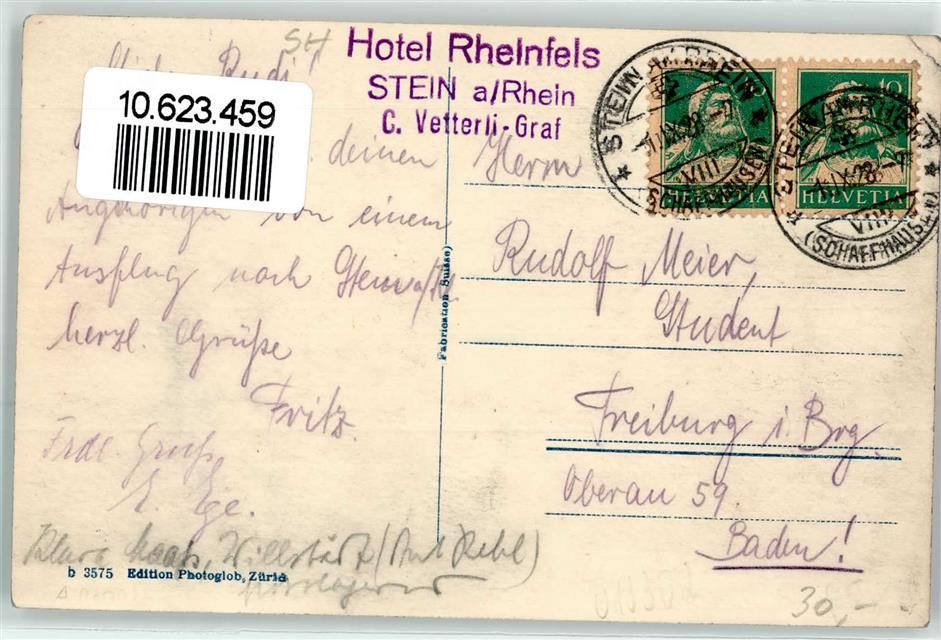 SH
Hotel Rheinfels
STEIN a/Rhein
C. Vetterli-Graf
10.623.459
Rudi!
deinen
Angehörigen von einem
Ausflug nach Stein a/Rh.
herzl. Grüße
Fritz.
Frdl. Gruß
E. Ege.
Klara Willstätt (Amt Kehl)
b 3575 Edition Photoglob, Zürich
Fabrication Suisse)
Herrn
Rudolf Meier,
Student
Freiburg i. Brg.
Oberau 59.
Baden!
30,-
STEIN AM RHEIN
VIII
(SCHAFFHAUSEN)
10
HELVETIA
STEIN AM RHEIN
VIII
(SCHAFFHAUSEN)
10
HELVETIA